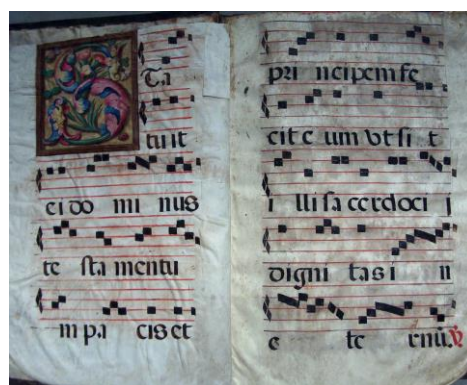 Sta
tuit
ei do mi nus
te sta mentu
m pa cis et
pri ncipem fe
cit e um vt si t
i lli sa cerdoci j
digni tas i n
e te rnu. V